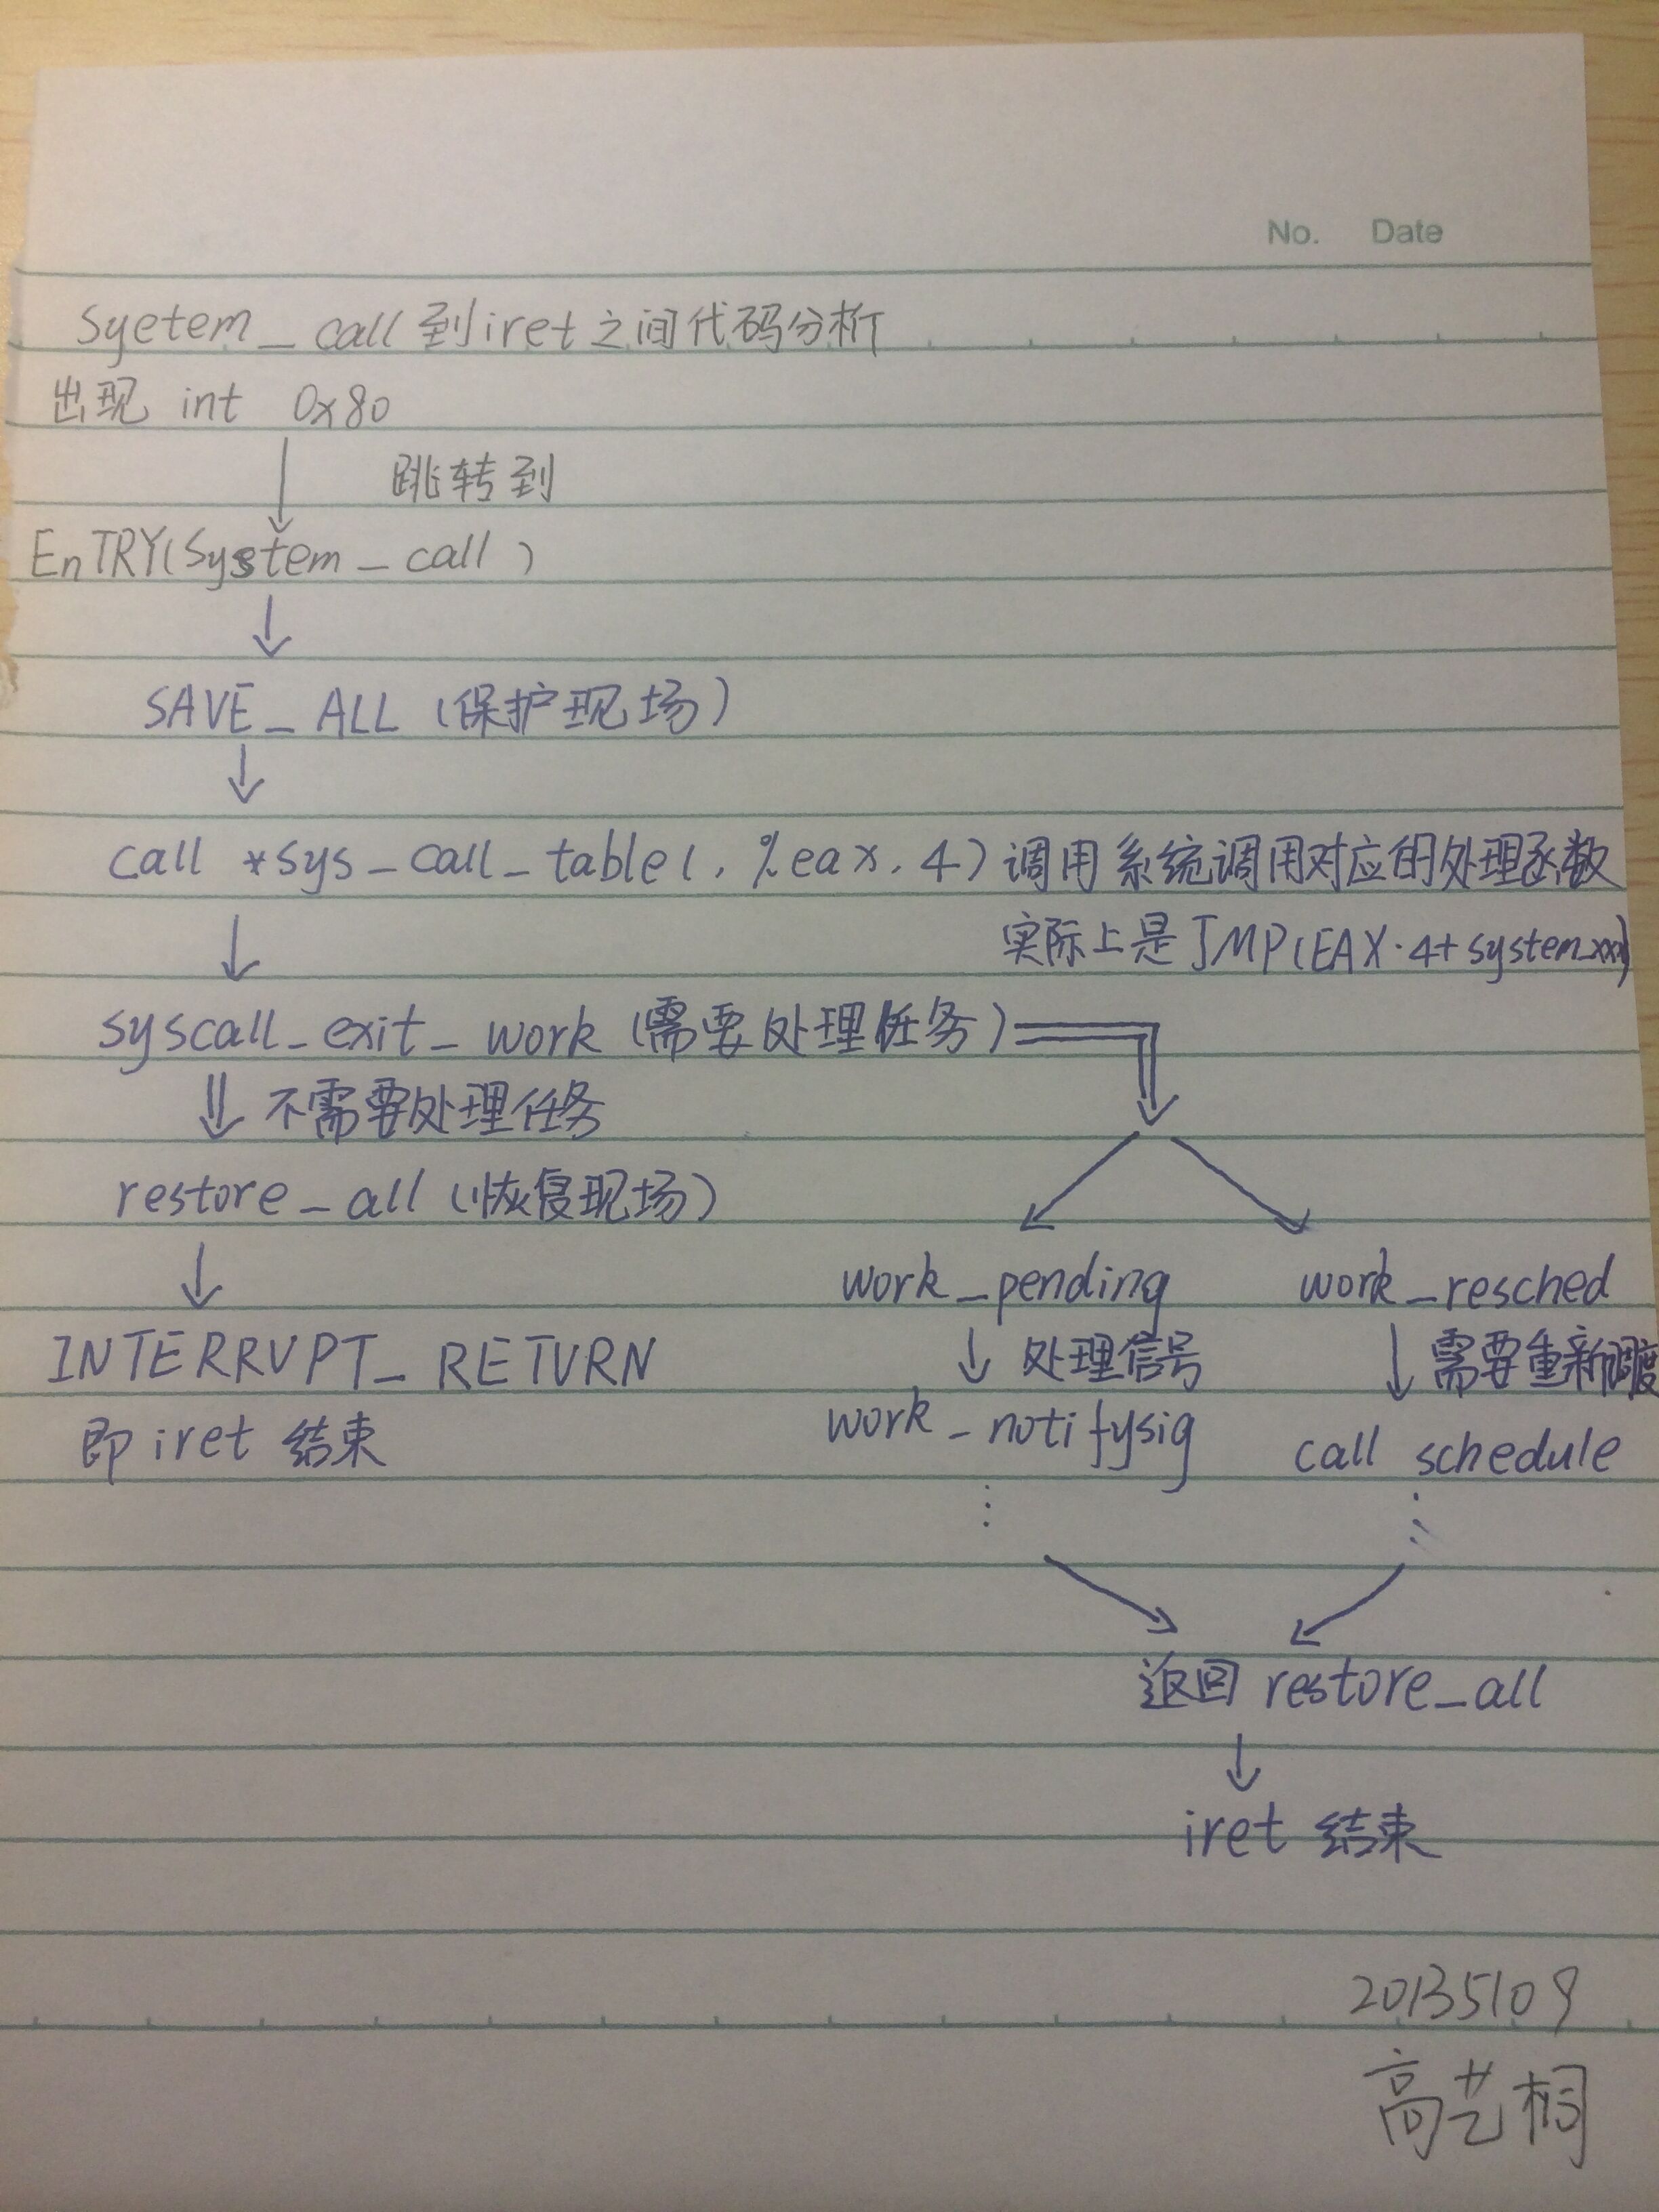 No. Date
Syetem_call到iret之间代码分析
出现 int 0x80
跳转到
EnTRY(System_call)
SAVE_ALL (保护现场)
call *sys_call_table(, %eax, 4) 调用系统调用对应的处理函数
实际上是JMP(EAX·4+system_xxx)
syscall_exit_work (需要处理任务)
不需要处理任务
restore_all (恢复现场)
work_pending work_resched
INTERRUPT_RETURN
处理信号 需要重新调度
即iret 结束
work_notifysig call schedule
返回 restore_all
iret 结束
20135109
高艺桐